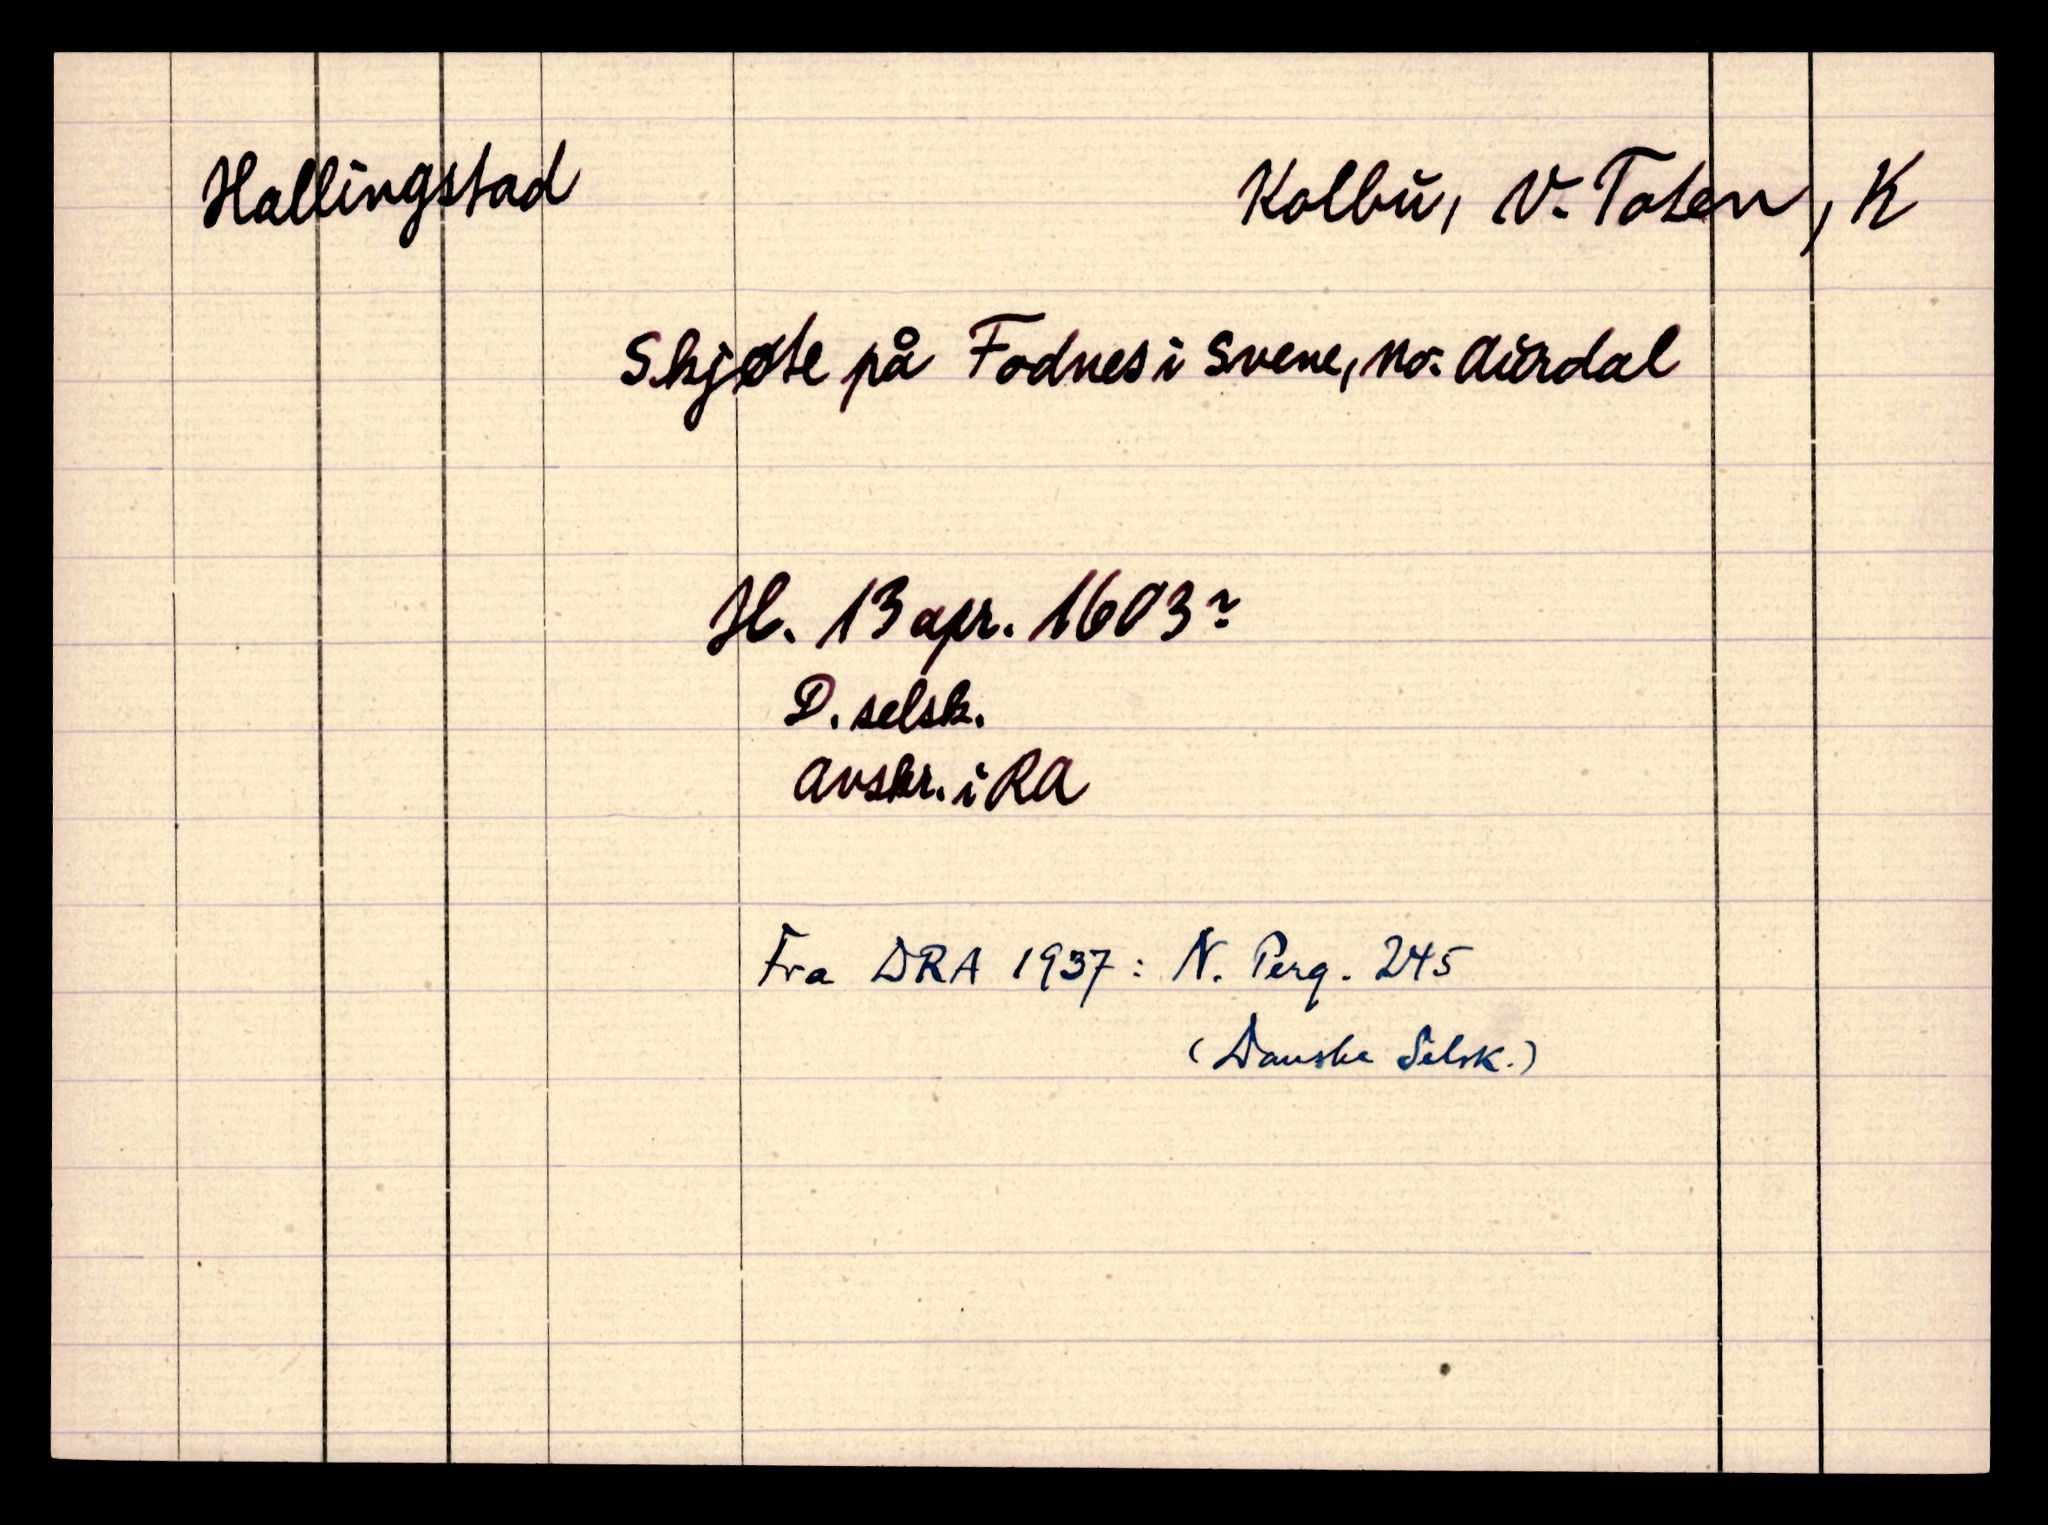 Hallingstad Kolbu, V. Toten, K
Skjøte på Fodnes i Svene, no. Aurdal
H. 13 apr. 1603?
D. selsk.
Avskr. i RA
Fra DRA 1937: N. Perg. 245
(Danske Selsk.)